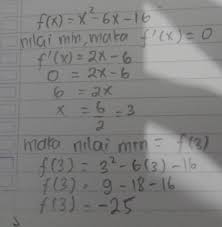 f(x) = x² - 6x - 16
nilai min, maka f'(x) = 0
f'(x) = 2x - 6
0 = 2x - 6
6 = 2x
x = 6/2 = 3
maka nilai min = f(3)
f(3) = 3² - 6(3) - 16
f(3) = 9 - 18 - 16
f(3) = -25